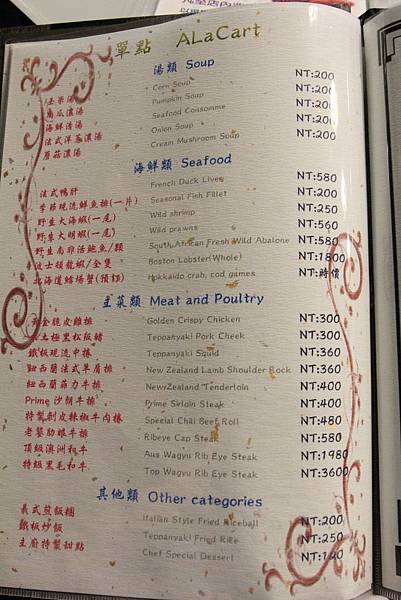 單點 ALaCart
湯類 Soup
玉米濃湯 Corn Soup NT:200
南瓜濃湯 Pumpkin Soup NT:200
海鮮清湯 Seafood Coissomme NT:200
法式洋蔥濃湯 Onion Soup NT:200
蘑菇濃湯 Cream Mushroom Soup NT:200
海鮮類 Seafood
法式鴨肝 French Duck Liver NT:580
季節現流鮮魚排(一片) Seasonal Fish Fillet NT:200
野生大海蝦(一尾) Wild shrimp NT:250
野生大明蝦(一尾) Wild prawns NT:560
野生南非活鮑魚/顆 South African Fresh Wild Abalone NT:580
波士頓龍蝦/全隻 Boston Lobster(Whole) NT:1800
北海道鱈場蟹(預訂) Hokkaido crab, cod games NT:時價
主菜類 Meat and Poultry
黃金脆皮雞排 Golden Crispy Chicken NT:300
本土極黑松阪豬 Teppanyaki Pork Cheek NT:300
鐵板現流中捲 Teppanyaki Squid NT:360
紐西蘭法式羊肩排 New Zealand Lamb Shoulder Rock NT:360
紐西蘭菲力牛排 New Zealand Tenderloin NT:400
Prime 沙朗牛排 Prime Sirloin Steak NT:400
特製剝皮辣椒牛肉捲 Special Chili Beef Roll NT:480
老饕肋眼牛排 Ribeye Cap Steak NT:580
頂級澳洲和牛 Aus Wagyu Rib Eye Steak NT:1980
特級黑毛和牛 Top Wagyu Rib Eye Steak NT:3600
其他類 Other categories
義式煎飯糰 Italian Style Fried Riceball NT:200
鐵板炒飯 Teppanyaki Fried Rice NT:250
主廚特製甜點 Chef Special Dessert NT:120